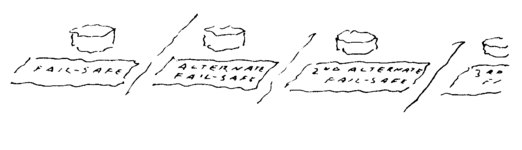 FAIL-SAFE
ALTERNATE
FAIL-SAFE
2ND ALTERNATE
FAIL-SAFE
3RD